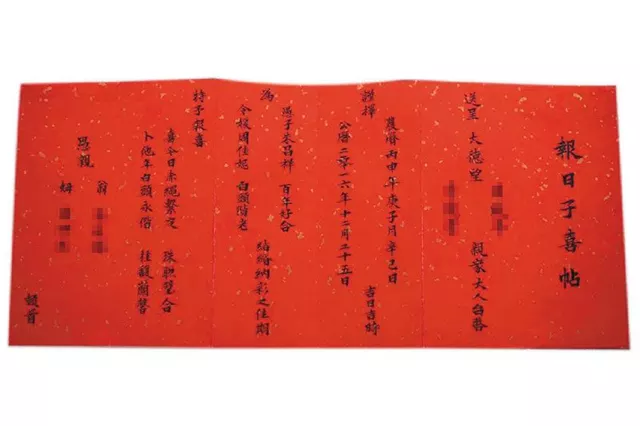 報日子喜帖
送呈 大德望 親家大人台啓
謹擇
農曆丙申年庚子月辛巳日 吉日吉時
公曆二零一六年十二月二十五日
為
昌祥 百年好合
令媛國佳 白頭偕老
納彩之佳期
報喜
喜今日赤繩繫定 珠聯璧合
卜他年白頭永偕 桂馥蘭馨
愚親
翁
姆
頓首